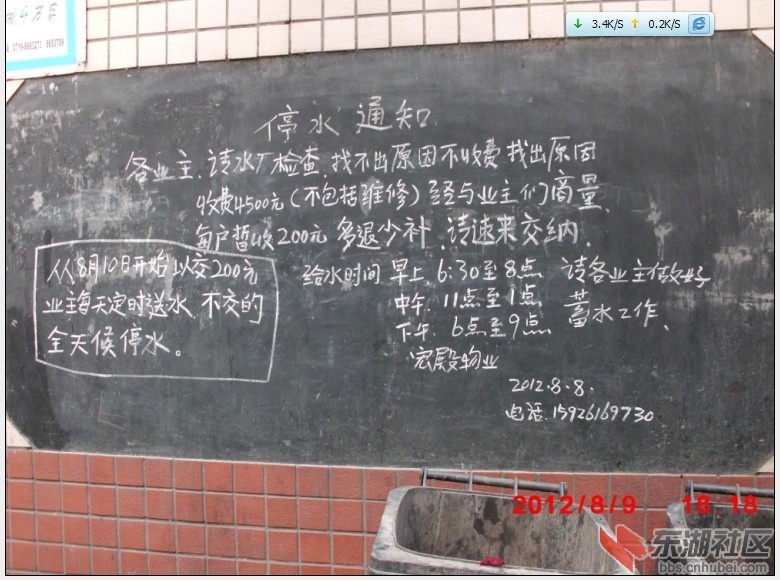 3.4K/S 0.2K/S
停水通知
各业主.请水厂检查.找不出原因不收费 找出原因
收费4500元(不包括维修)经与业主们商量.
每户暂收200元 多退少补.请速来交纳.
从8月10日开始 以交200元
业主每天定时送水.不交的
全天候停水。
给水时间 早上 6:30至8点
中午.11点至1点
下午.6点至9点
请各业主做好
蓄水工作.
宏殿物业
2012.8.8.
电话.15926169730
2012/8/9 18:18
东湖社区
bbs.cnhubei.com